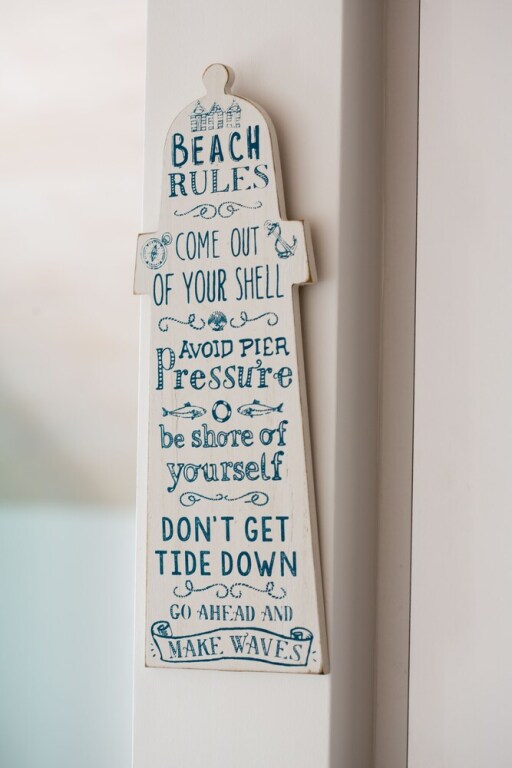 BEACH
RULES
COME OUT
OF YOUR SHELL
AVOID PIER
Pressure
be shore of
yourself
DON'T GET
TIDE DOWN
GO AHEAD AND
MAKE WAVES